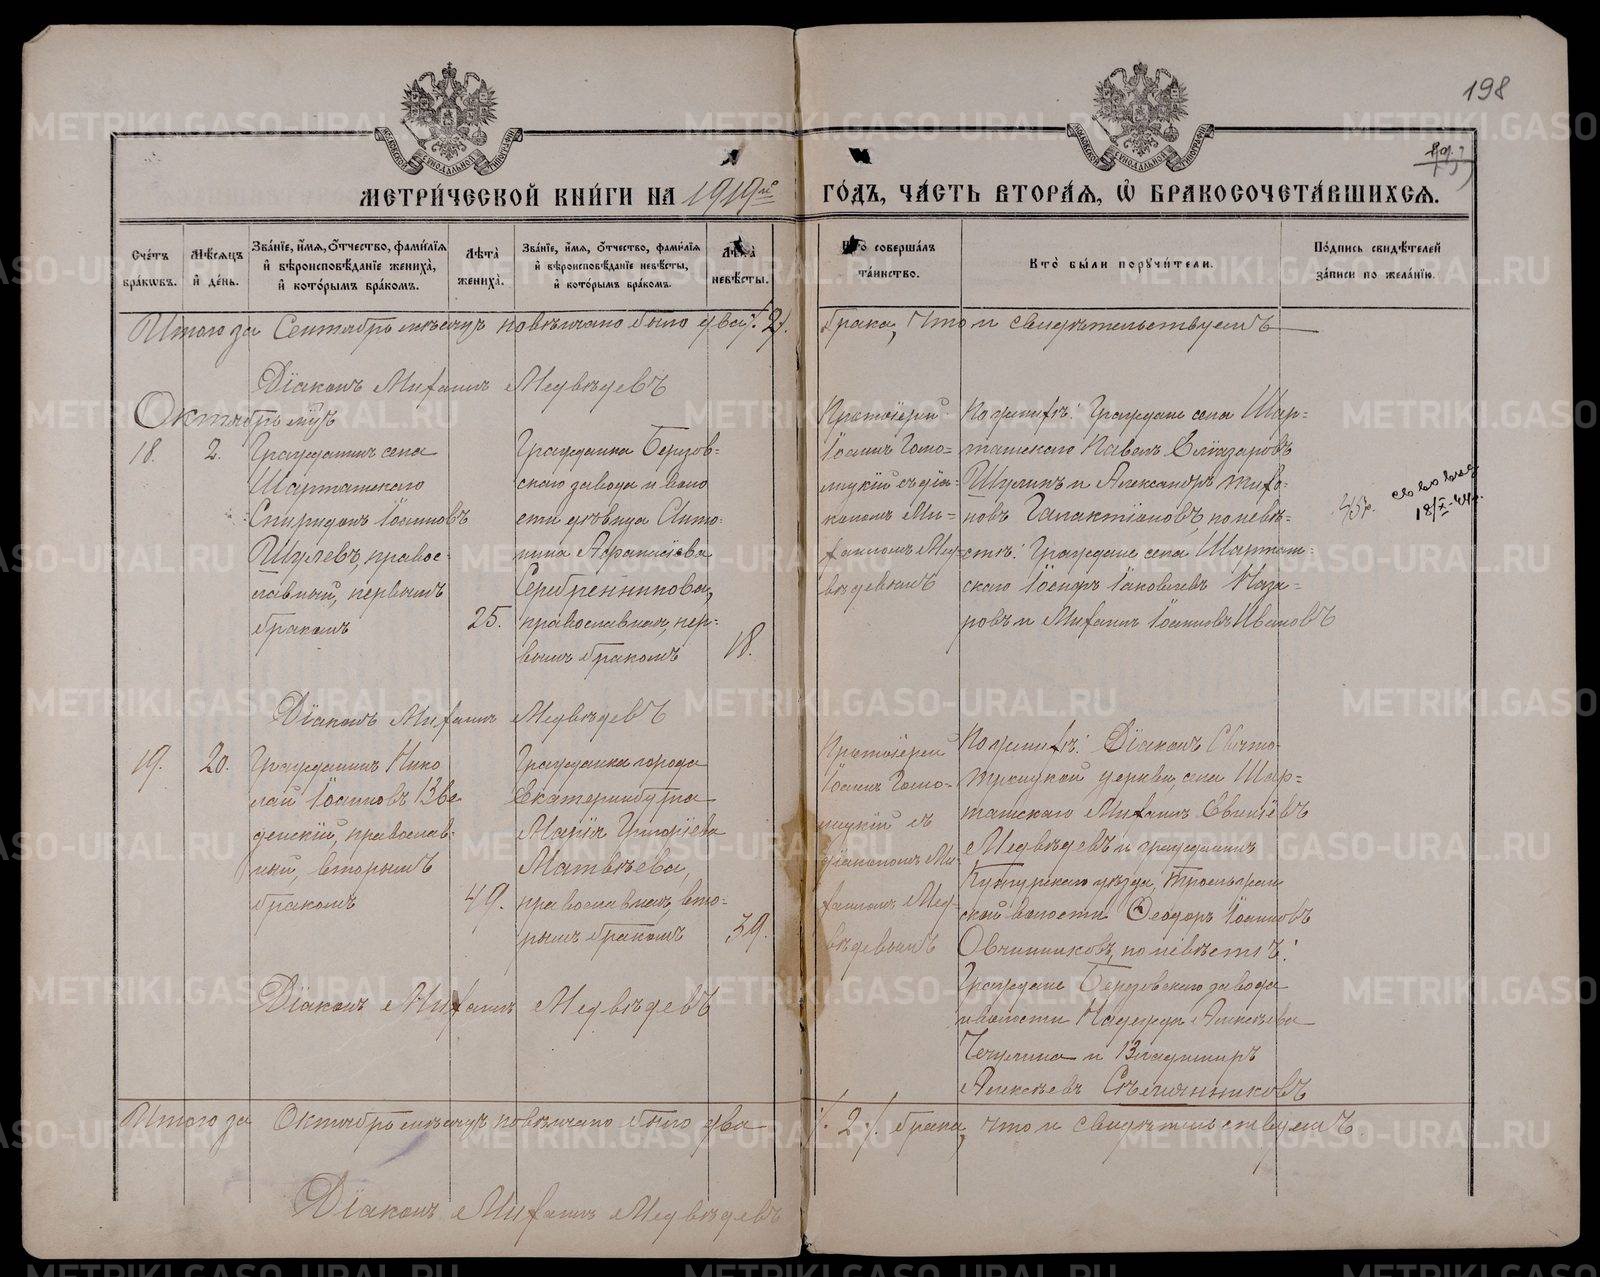 198
МЕТРИ́ЧЕСКОЙ КНИ́ГИ НА 1919й ГО́ДЪ, ЧА́СТЬ ВТОРА́Я, Ѡ҆ БРАКОСОЧЕТА́ВШИХСЯ.
Сче́тъ бра́кѡвъ.
Мѣ́сяцъ и҆ де́нь.
Зва́нїе, и҆́мя, ѻ҆́тчество, фами́лїя и҆ вѣроисповѣ́данїе жениха̀, и҆ кото́рымъ бра́комъ.
Лѣта̀ жениха̀.
Зва́нїе, и҆́мя, ѻ҆́тчество, фами́лїя и҆ вѣроисповѣ́данїе невѣ́сты, и҆ кото́рымъ бра́комъ.
Лѣта̀ невѣ́сты.
Кто̀ соверша́лъ та́инство.
Кто̀ бы́ли поручи́тели.
По́дпись свидѣ́телей за́писи по жела́нїю.
Итого за Сентябрь мѣсяцъ повѣнчано было два /.2/. брака, что и свидѣтельствуемъ
Дїаконъ Михаилъ Медвѣдевъ
Октябрь мцъ
18.
2.
Гражданинъ села
Шарташскаго
Спиридонъ Іоанновъ
Шулевъ, правос-
лавный, первымъ
бракомъ
25.
Гражданка Березов-
скаго завода и воло
сти дѣвица Анто-
нина Афанасіева
Серебренникова,
православная, пер-
вымъ бракомъ
18.
Протоіерей
Іоаннъ Гомо-
лицкій съ діа-
кономъ Ми-
хаиломъ Мед-
вѣдевымъ
По женихѣ: Граждане села Шар-
ташскаго Павелъ Елиазаровъ
Шулинъ и Александръ Тихо-
новъ Галактіоновъ, по невѣ-
стѣ: Граждане села Шарташ-
скаго Іосифъ Іаковлевъ Наза-
ровъ и Михаилъ Іоанновъ Ивановъ
18/X-44г.
Дїаконъ Михаилъ Медвѣдевъ
19.
20.
Гражданинъ Нико
лай Іоанновъ Вве
денскій, православ-
ный, вторымъ
бракомъ
49.
Гражданка города
Екатеринбурга
Марїя Григорїева
Матвѣева,
православная, вто-
рымъ бракомъ
39.
Протоіерей
Іоаннъ Гомо-
лицкій съ
діакономъ Ми-
хаиломъ Мед-
вѣдевымъ
По женихѣ: Дїаконъ Свято-
Троицкой церкви, села Шар-
ташскаго Михаилъ Евгеніевъ
Медвѣдевъ и гражданинъ
Кунгурскаго уѣзда,
ской волости Ѳеодоръ Іоанновъ
Овчинниковъ, по невѣстѣ:
Граждане Березовскаго завода
и волости Надежда Алексѣева
и Владиміръ
Алексѣевъ
Дїаконъ Михаилъ Медвѣдевъ
Итого за Октябрь мѣсяцъ повѣнчано было два /.2/. брака, что и свидѣтельствуемъ
Дїаконъ Михаилъ Медвѣдевъ
METRIKI.GASO-URAL.RU